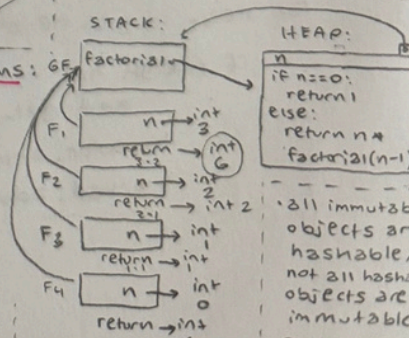 STACK:
HEAP:
ns:
GF
factorial
n
if n==0:
return 1
else:
return n*
factorial(n-1
F1
n → int
3
return → int
3·2
6
F2
n → int
2
return → int 2
2·1
F3
n → int
1
return → int
1·1
1
F4
n → int
0
return → int
·all immutab
objects ar
hashable,
not all hash
objects are
immutable